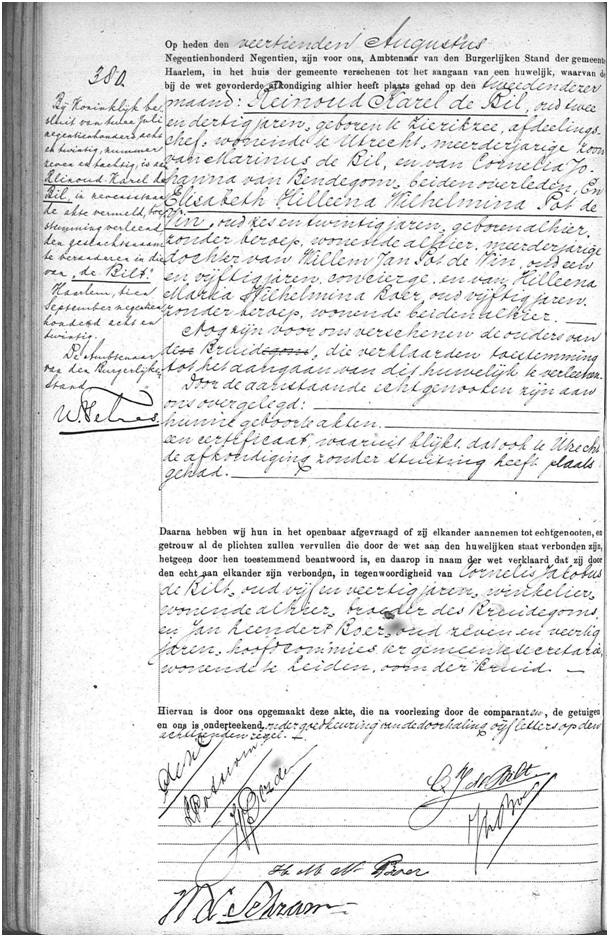 380.
Bij Koninklijk be-
sluit van twee Juli
negentienhonderd acht
en twintig, nummer
zeven en tachtig, is aan
Reinoud Karel de
Bil, in nevenstaan
de akte vermeld, toe
stemming verleend
den geslachtsnaam
te veranderen in die
van "de Bilt".
Haarlem, tien
September negentien
honderd acht en
twintig.
De Ambtenaar
van den Burgerlijken
Stand
Op heden den veertienden Augustus
Negentienhonderd Negentien, zijn voor ons, Ambtenaar van den Burgerlijken Stand der gemeente
Haarlem, in het huis der gemeente verschenen tot het aangaan van een huwelijk, waarvan de
bij de wet gevorderde afkondiging alhier heeft plaats gehad op den tweeden dezer
maand: Reinoud Karel de Bil, oud twee
en dertig jaren, geboren te Zierikzee, afdeelings-
chef, wonende te Utrecht, meerderjarige zoon
van Marinus de Bil, en van Cornelia Jo-
hanna van Bendegom, beiden overleden, En
Elisabeth Hilleena Wilhelmina Pot de
Vin, oud zes en twintig jaren, geboren alhier,
zonder beroep, wonende alhier, meerderjarige
dochter van Willem Jan Pot de Vin, oud een
en vijftig jaren, concierge, en van Hilleena
Maria Wilhelmina Boer, oud vijftig jaren,
zonder beroep, wonende beiden alhier.
Nog zijn voor ons verschenen de ouders van
de Bruidegoms, die verklaarden toestemming
tot het aangaan van dis huwelijk te verleenen.
Door de aanstaande echtgenooten zijn aan
ons overgelegd:
hunne geboorteakten.
een certificaat, waaruit blijkt, dat ook te Utrecht
de afkondiging zonder stuiting heeft plaats
gehad.
Daarna hebben wij hun in het openbaar afgevraagd of zij elkander aannemen tot echtgenooten, en
getrouw al de plichten zullen vervullen die door de wet aan den huwelijken staat verbonden zijn,
hetgeen door hen toestemmend beantwoord is, en daarop in naam der wet verklaard dat zij door
den echt aan elkander zijn verbonden, in tegenwoordigheid van Cornelis Jacobus
de Bilt, oud vijf en veertig jaren, winkelier,
wonende alhier, broeder des Bruidegoms,
en Jan Leendert Boer, oud zeven en veertig
jaren, hoofdcommies ter gemeentesecretarie,
wonende te Leiden, oom der Bruid.
Hiervan is door ons opgemaakt deze akte, die na voorlezing door de comparanten, de getuigen
en ons is onderteekend, onder goedkeuring van de doorhaling vijf letters op den
achttienden regel.
C J de Bilt
H. M. W. Boer
Schram